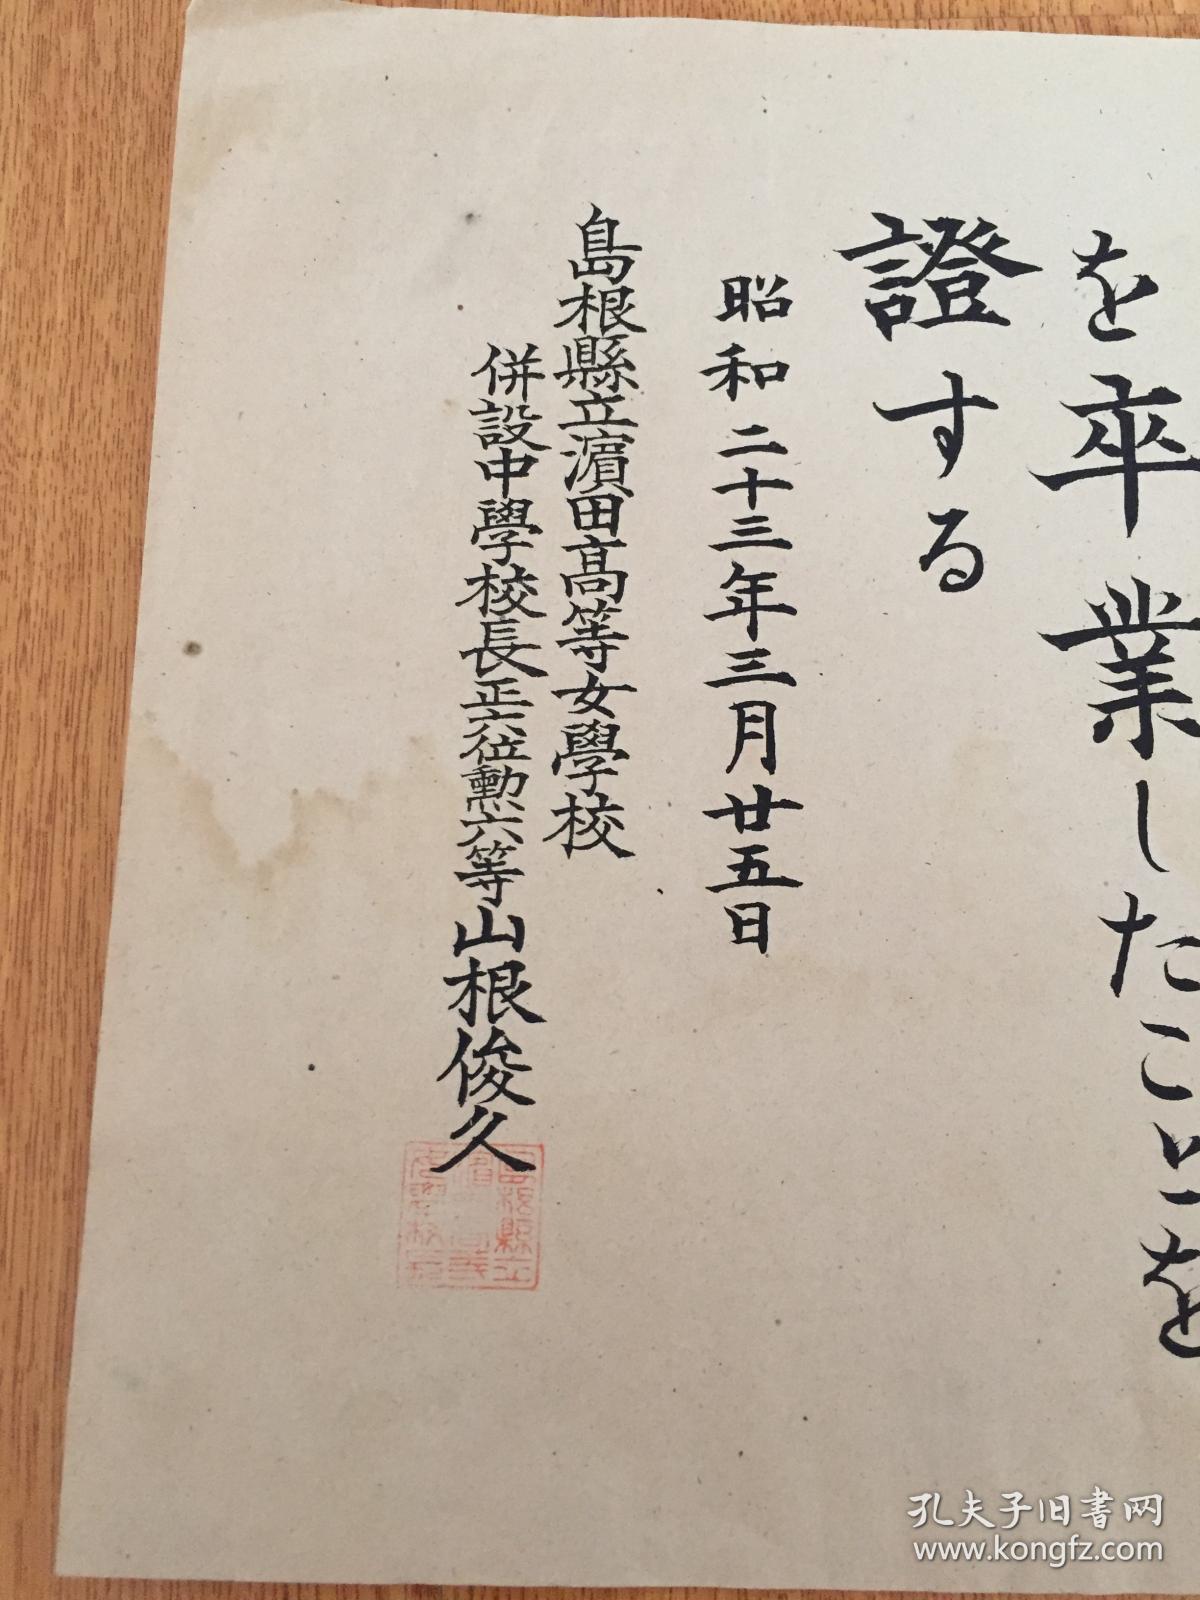 を卒業したことを
證する
昭和二十三年三月廿五日
島根縣立濱田高等女學校
併設中學校長正六位勲六等山根俊久
孔夫子旧书网
www.kongfz.com